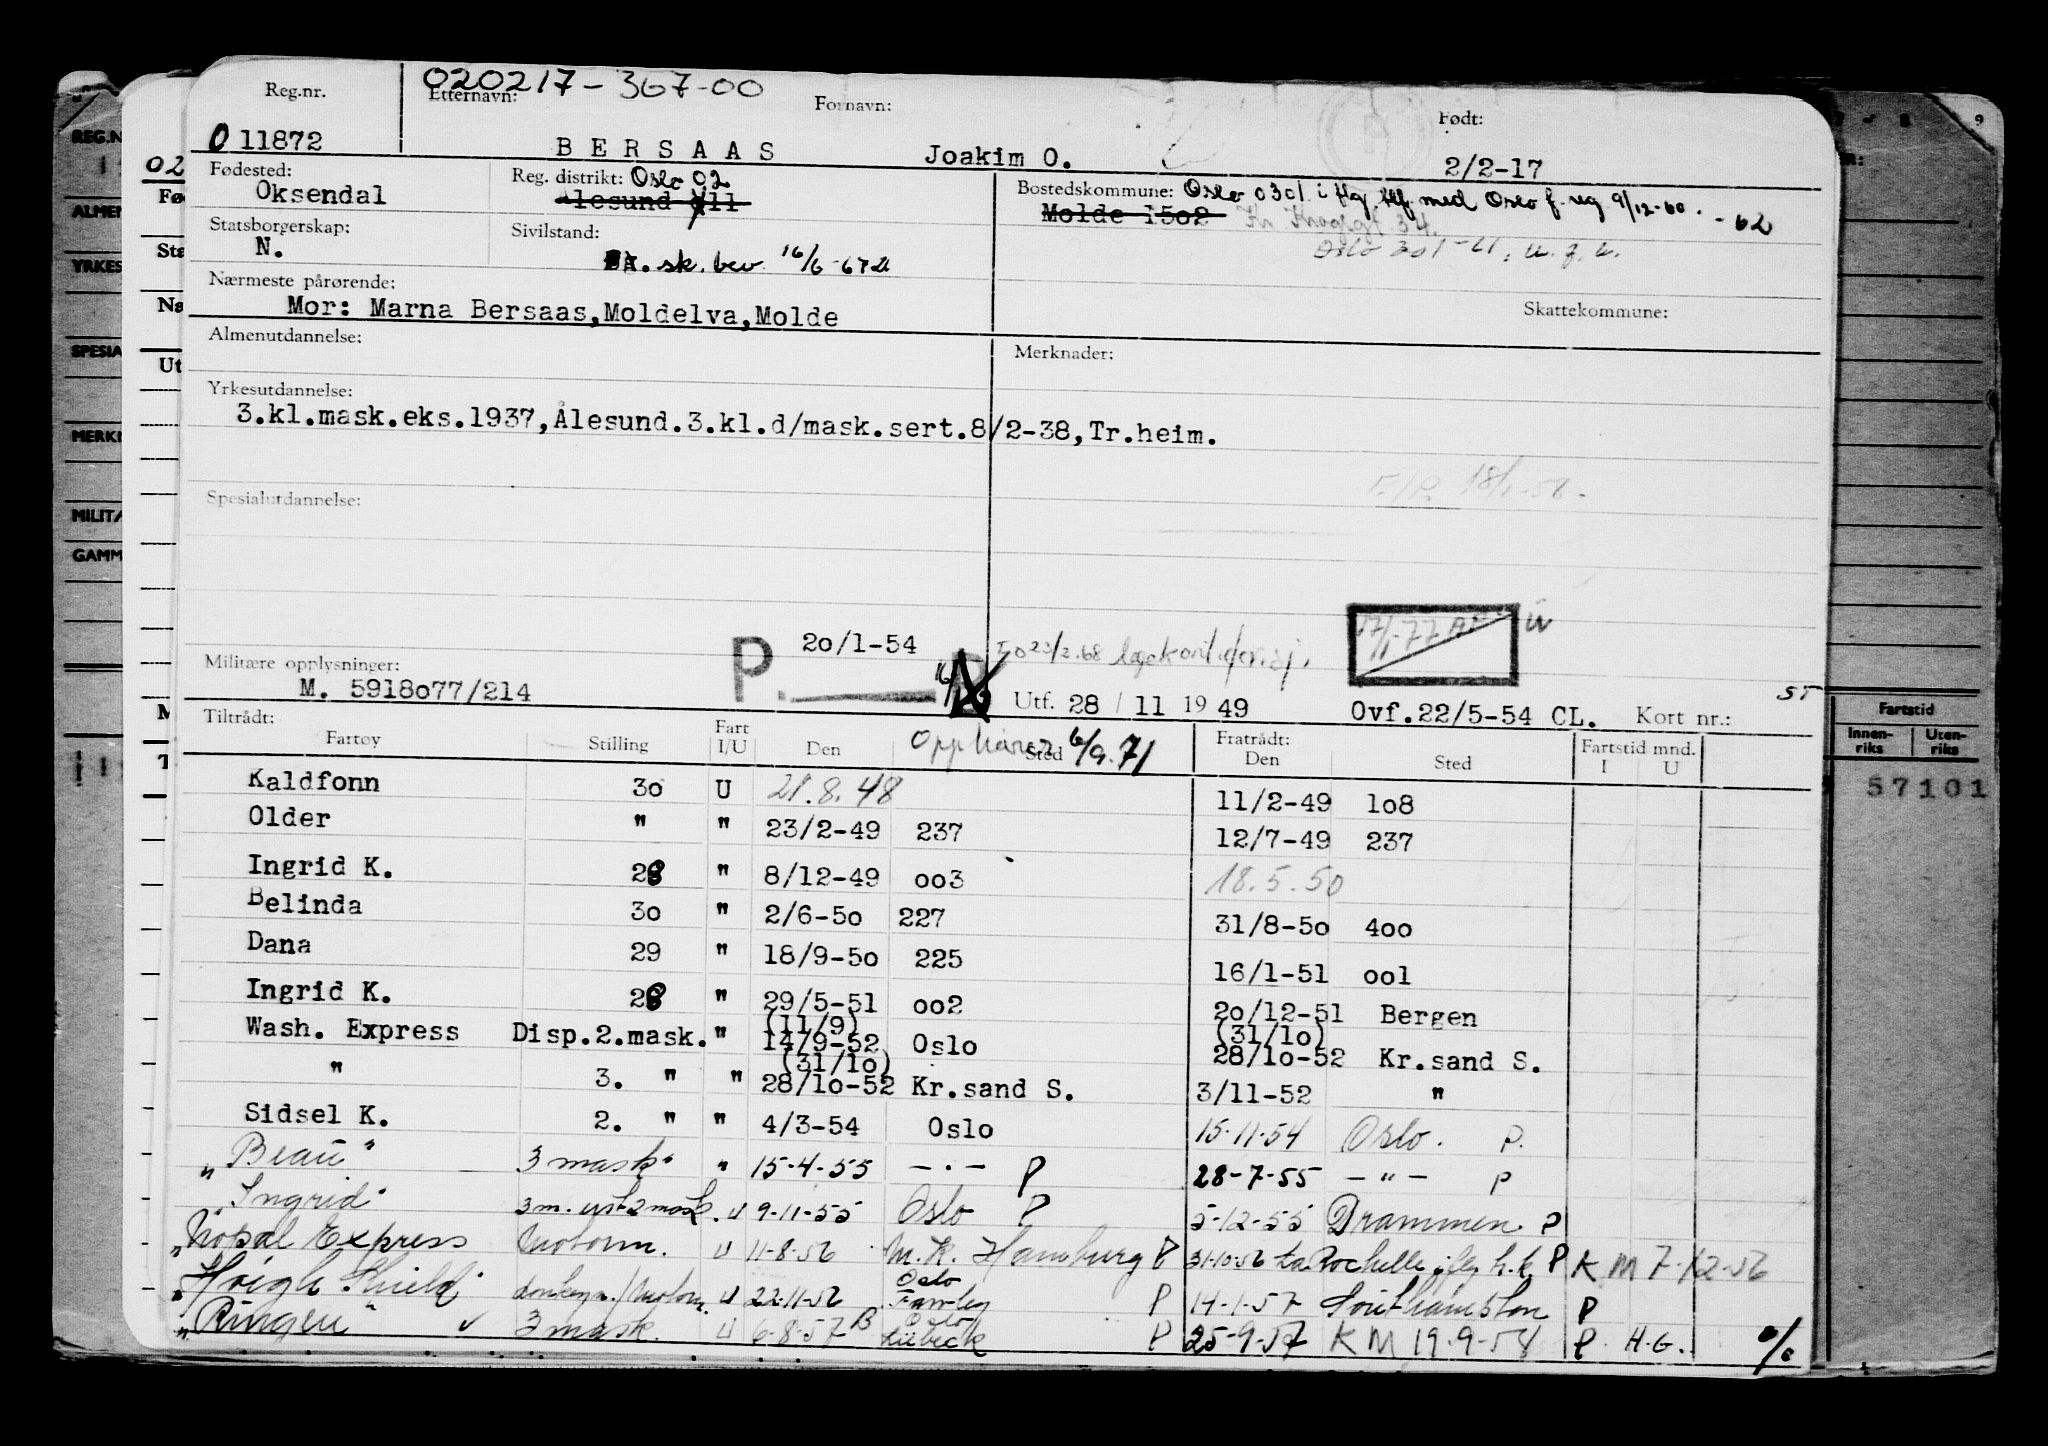 020217-367-00
Reg.nr. Etternavn: Fornavn: Født:
0 11872 BERSAAS Joakim O. 2/2-17
Fødested: Reg. distrikt: Oslo 02 Bostedskommune: Oslo 0301 i flg. tlf med Oslo f. reg 9/12-60. -62
Oksendal Ålesund 011 Molde 1502 Kr. Kroggt 34.
Statsborgerskap: Sivilstand: Oslo 301-21, u.f.u.
N. sk. bev. 16/6-67
Nærmeste pårørende: Skattekommune:
Mor: Marna Bersaas,Moldelva,Molde
Almenutdannelse: Merknader:
Yrkesutdannelse:
3.kl.mask.eks.1937,Ålesund.3.kl.d/mask.sert.8/2-38,Tr.heim.
18/1-58.
Spesialutdannelse:
P. 20/1-54 23/2.68
17/1-77
Militære opplysninger:
M. 5918o77/214 Utf. 28 / 11 19 49 Ovf.22/5-54 CL. Kort nr.: ST
Tiltrådt: Opphører 6/9.71 Fratrådt: Fartstid mnd.
Fartøy Stilling Fart I/U Den Sted Den Sted I U
Kaldfonn 3o U 21.8.48 11/2-49 1o8
Older " " 23/2-49 237 12/7-49 237
Ingrid K. 28 " 8/12-49 oo3 18.5.50
Belinda 3o " 2/6-5o 227 31/8-5o 4oo
Dana 29 " 18/9-5o 225 16/1-51 oo1
Ingrid K. 28 " 29/5-51 oo2 2o/12-51 Bergen
Wash. Express Disp.2.mask. " (11/9) 14/9-52 Oslo (31/1o) 28/1o-52 Kr.sand S.
" 3. " " (31/1o) 28/1o-52 Kr.sand S. 3/11-52 "
Sidsel K. 2. " " 4/3-54 Oslo 15.11.54 Oslo. P.
"Beau" 3 mask " 15-4-55 - . - P 28-7-55 - " - P
"Ingrid" 3 m. 2 mask. U 9-11-55 Oslo P 5-12-55 Drammen P
"Nopal Express Motorm. U 11-8-56 M.K. Hamburg P 31-10-56 La Rochelle P K M 7-12-56
"Høigh Shield" donkeym./Motorm. U 22-11-56 Oslo Fawley P 14-1-57 Southampton P
"Ringen" ✓ 3 mask. U 6-8-57 B Oslo Lübeck P 25-9-57 K M 19.9-58 P. H.G.
REG.N
ALMEN
YRKES
SPESIA
MERKN
MILITÆ
GAMM
02
Fartstid
Innenriks Utenriks
57101